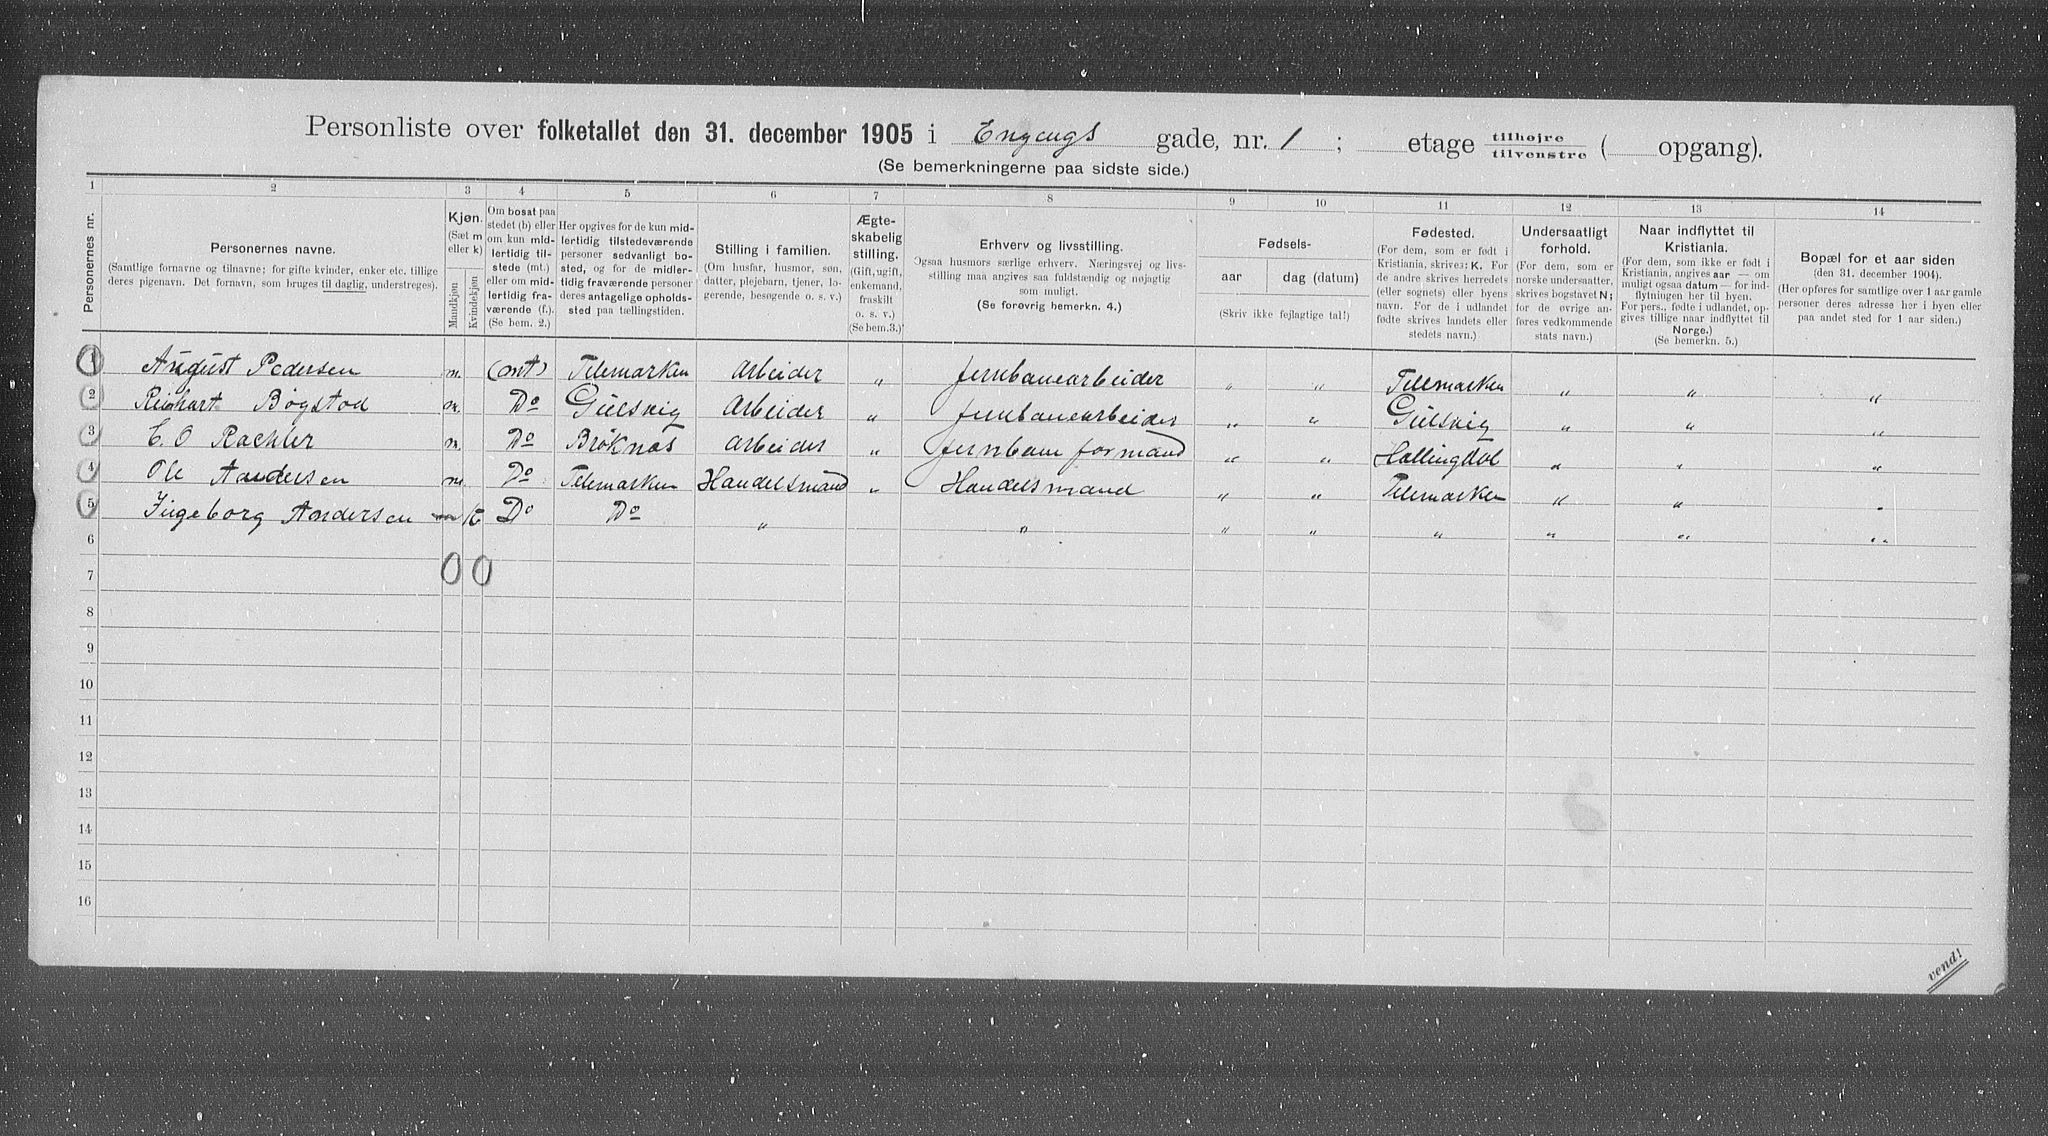 Personliste over folketallet den 31. december 1905 i Engengs gade, nr. 1 ; etage tilhøjre tilvenstre ( opgang).
(Se bemerkningerne paa sidste side.)
1 2 3 4 5 6 7 8 9 10 11 12 13 14
Personernes nr.
Personernes navne.
(Samtlige fornavne og tilnavne; for gifte kvinder, enker etc. tillige
deres pigenavn. Det fornavn, som bruges til daglig, understreges).
Kjøn.
(Sæt m
eller k)
Mandkjøn
Kvindekjøn
Om bosat paa
stedet (b) eller
om kun mid-
lertidig til-
stede (mt.)
eller om mid-
lertidig fra-
værende (f.).
(Se bem. 2.)
Her opgives for de kun mid-
lertidig tilstedeværende
personer sedvanlig bo-
sted, og for de midler-
tidig fraværende personer
deres antagelige opholds-
sted paa tællingstiden.
Stilling i familien.
(Om husfar, husmor, søn,
datter, plejebarn, tjener, lo-
gerende, besøgende o. s. v.)
Ægte-
skabelig
stilling.
(Gift, ugift,
enkemand,
fraskilt
o. s. v.)
(Se bem.3.)
Erhverv og livsstilling.
Ogsaa husmors særlige erhverv. Næringsvej og livs-
stilling maa angives saa fuldstændig og nøjagtig
som muligt.
(Se forøvrig bemerkn. 4.)
Fødsels-
aar dag (datum)
(Skriv ikke fejlagtige tal!)
Fødested.
(For dem, som er født i
Kristiania, skrives: K. For
de andre skrives herredets
(eller sognets) eller byens
navn. For de i udlandet
fødte skrives landets eller
stedets navn.)
Undersaatligt
forhold.
(For dem, som er
norske undersaatter,
skrives bogstavet N;
for de øvrige an-
føres vedkommende
stats navn.)
Naar indflyttet til
Kristiania.
(For dem, som ikke er født i
Kristiania, angives aar — om
muligt ogsaa datum — for ind-
flytningen her til byen.
For pers., fødte i udlandet, op-
gives tillige naar indflyttet til
Norge.)
(Se bemerkn. 5.)
Bopæl for et aar siden
(den 31. december 1904).
(Her opføres for samtlige over 1 aar gamle
personer deres adresse her i byen eller
paa andet sted for 1 aar siden.)
1 August Pedersen m. (mt) Telemarken Arbeider " Jernbanearbeider " " Telemarken " " "
2 Reinhart Bøgstod m. Do Gulsvig Arbeider " Jernbanearbeider " " Gulsvig " " "
3 C. O Rachler m. Do Bröknas Arbeider " Jernbane formand " " Hallingdol " " "
4 Ole Andersen m. Do Telemarken Handelsmand " Handelsmand " " Telemarken " " "
5 Ingeborg Andersen k Do Do " " " " " " " "
6
0 0
7
8
9
10
11
12
13
14
15
16
vend!